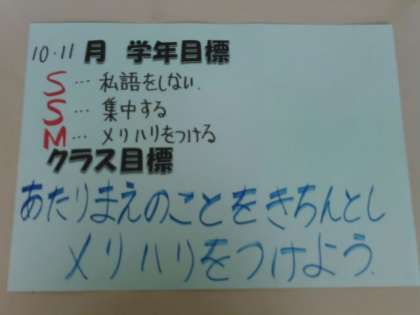 10・11月 学年目標
S … 私語をしない.
S … 集中する
M … メリハリをつける
クラス目標
あたりまえのことをきちんとし
メリハリをつけよう.